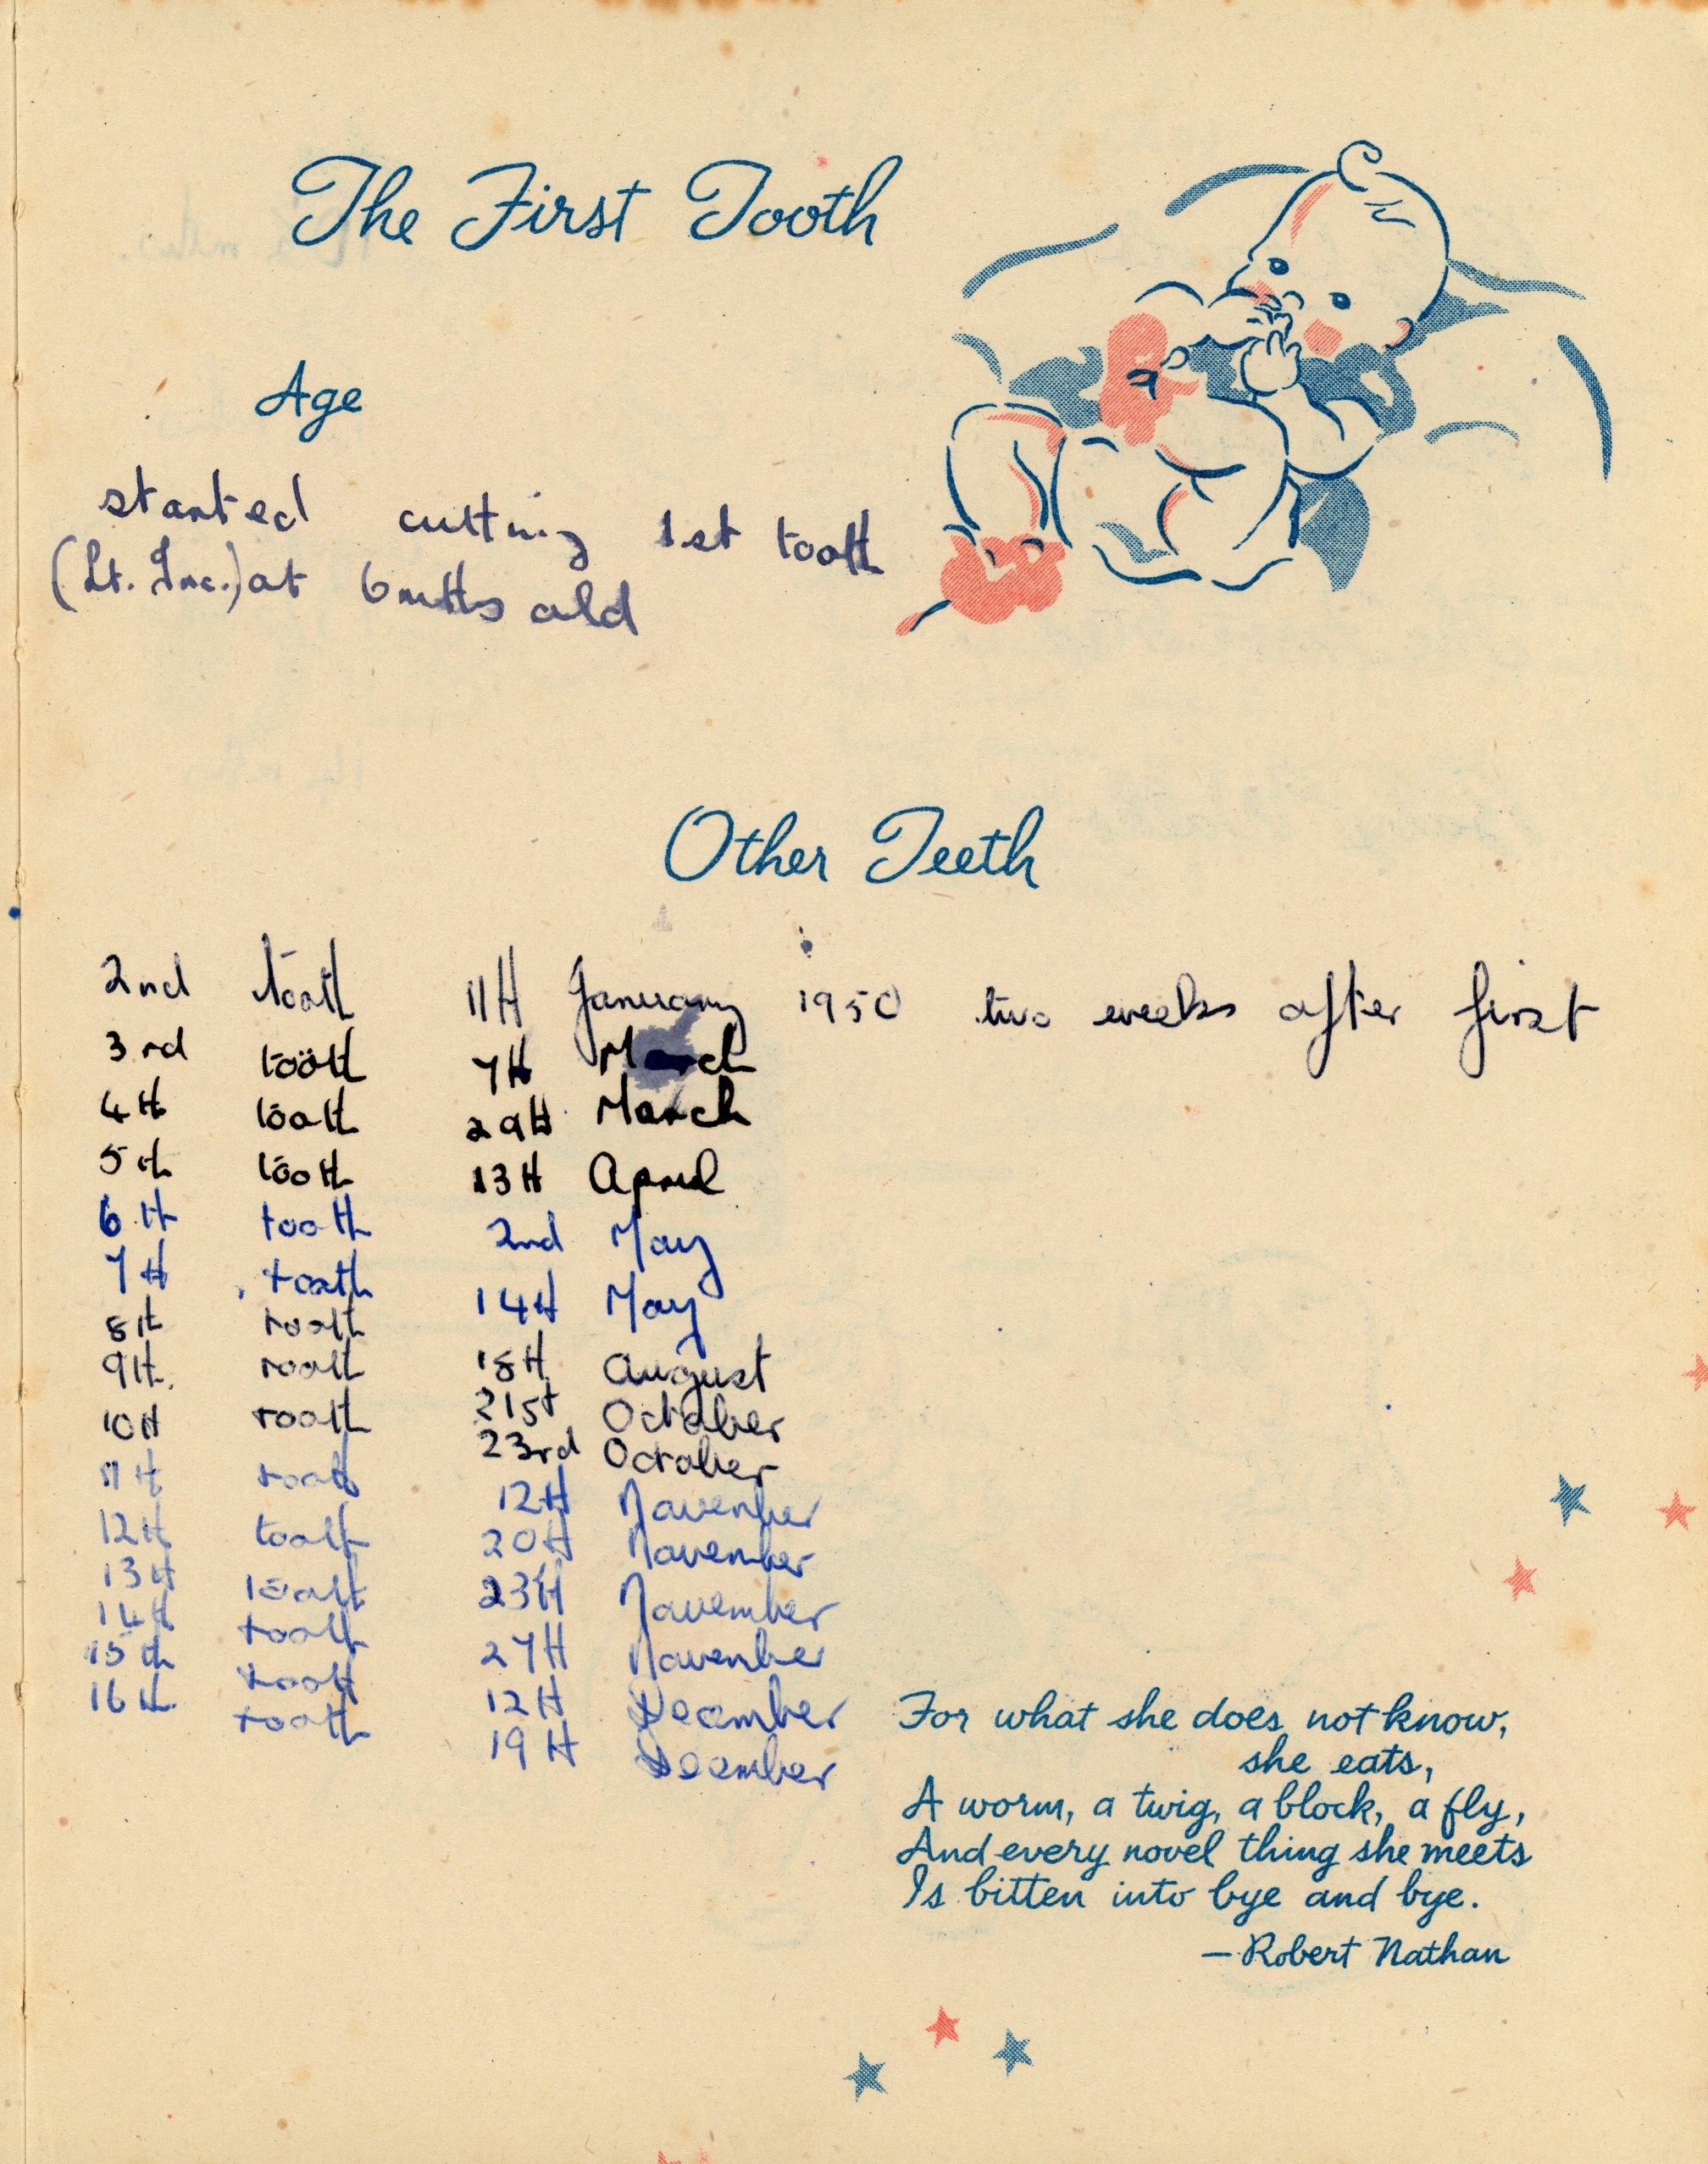 The First Tooth
Age
started cutting 1st tooth
(Lt. Inc.) at 6 mths old
Other Teeth
2nd tooth 11th January 1950 two weeks after first
3rd tooth 7th March
4th tooth 29th March
5th tooth 13th April
6th tooth 2nd May
7th tooth 14th May
8th tooth 18th August
9th tooth 21st October
10th tooth 23rd October
11th tooth 12th November
12th tooth 20th November
13th tooth 23th November
14th tooth 27th November
15th tooth 12th December
16th tooth 19th December
For what she does not know,
she eats,
A worm, a twig, a block, a fly,
And every novel thing she meets
Is bitten into bye and bye.
—Robert Nathan